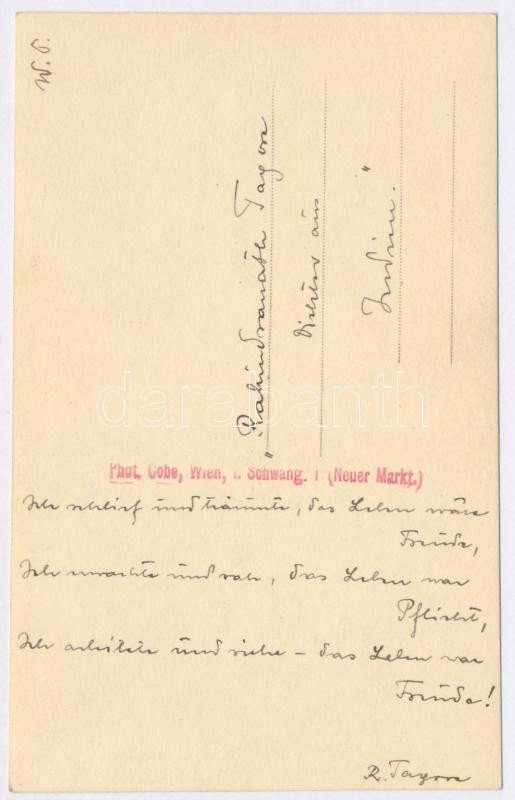 W. S.
"Rabindranath Tagore
Dichter aus
Indien."
darabanth
Phot. Cobe, Wien, I. Schwang. 1 (Neuer Markt.)
Ich schlief und träumte, das Leben wäre
Freude,
Ich erwachte und sah, das Leben war
Pflicht,
Ich arbeitete und siehe – das Leben war
Freude!
R. Tagore